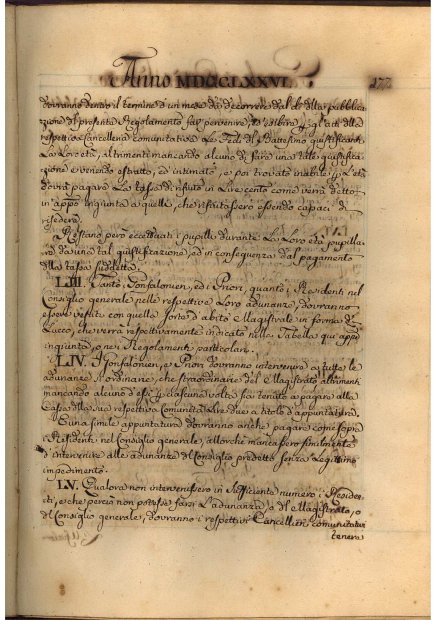 Anno MDCCLXXVI. 177
dovranno dentro il termine d'un mese da decorrere dal dì della pubblica
zione del presente Regolamento far pervenire, ed esibire negl'atti della
respettiva Cancelleria comunitativa Le Fedi di Battesimo giustificanti
La Loro età, altrimenti mancando alcuno di fare una tale giustifica
zione e venendo estratto, ed intimato, e poi trovato inabile p. L'età
dovrà pagare La tassa di rifiuto in Lire cento come verrà detto
in appo ingiunta a quelli, che rifiutassero essendo capaci di
risedere.
Restano però eccettuati i pupilli durante La Loro età pupilla
re da una tal giustificazione, ed in conseguenza dal pagamento
della tassa suddetta.
LIII. Tanto i Gonfalonieri, ed i Priori, quanto i Residenti nel
Consiglio generale nelle respettive Loro adunanze, dovranno
essere vestiti con quella sorte d'abito Magistrale in forma di
Lucco, che verrà respettivamente indicato nella Tabella qui appo
ingiunta, o nei Regolamenti particolari.
LIV. I Gonfalonieri, e Priori dovranno intervenire a tutte le
adunanze sì ordinarie, che straordinarie del Magistrato, altrimenti
mancando alcuno d'essi p. ciascuna volta sia tenuto a pagare alla
Cassa della sua respettiva Comunità Lire due a titolo d'appuntatura.
E una simile appuntatura dovranno anche pagare come sopra
i Residenti nel Consiglio generale, allorchè mancassero similmente
d'intervenire alle adunanze del Consiglio predetto senza Legittimo
impedimento.
LV. Qualora non intervenissero in sufficiente numero i Reside
ti, e che perciò non potesse farsi L'adunanza, o del Magistrato, o
del Consiglio generale, dovranno i respettivi Cancellieri comunitativi
tenere